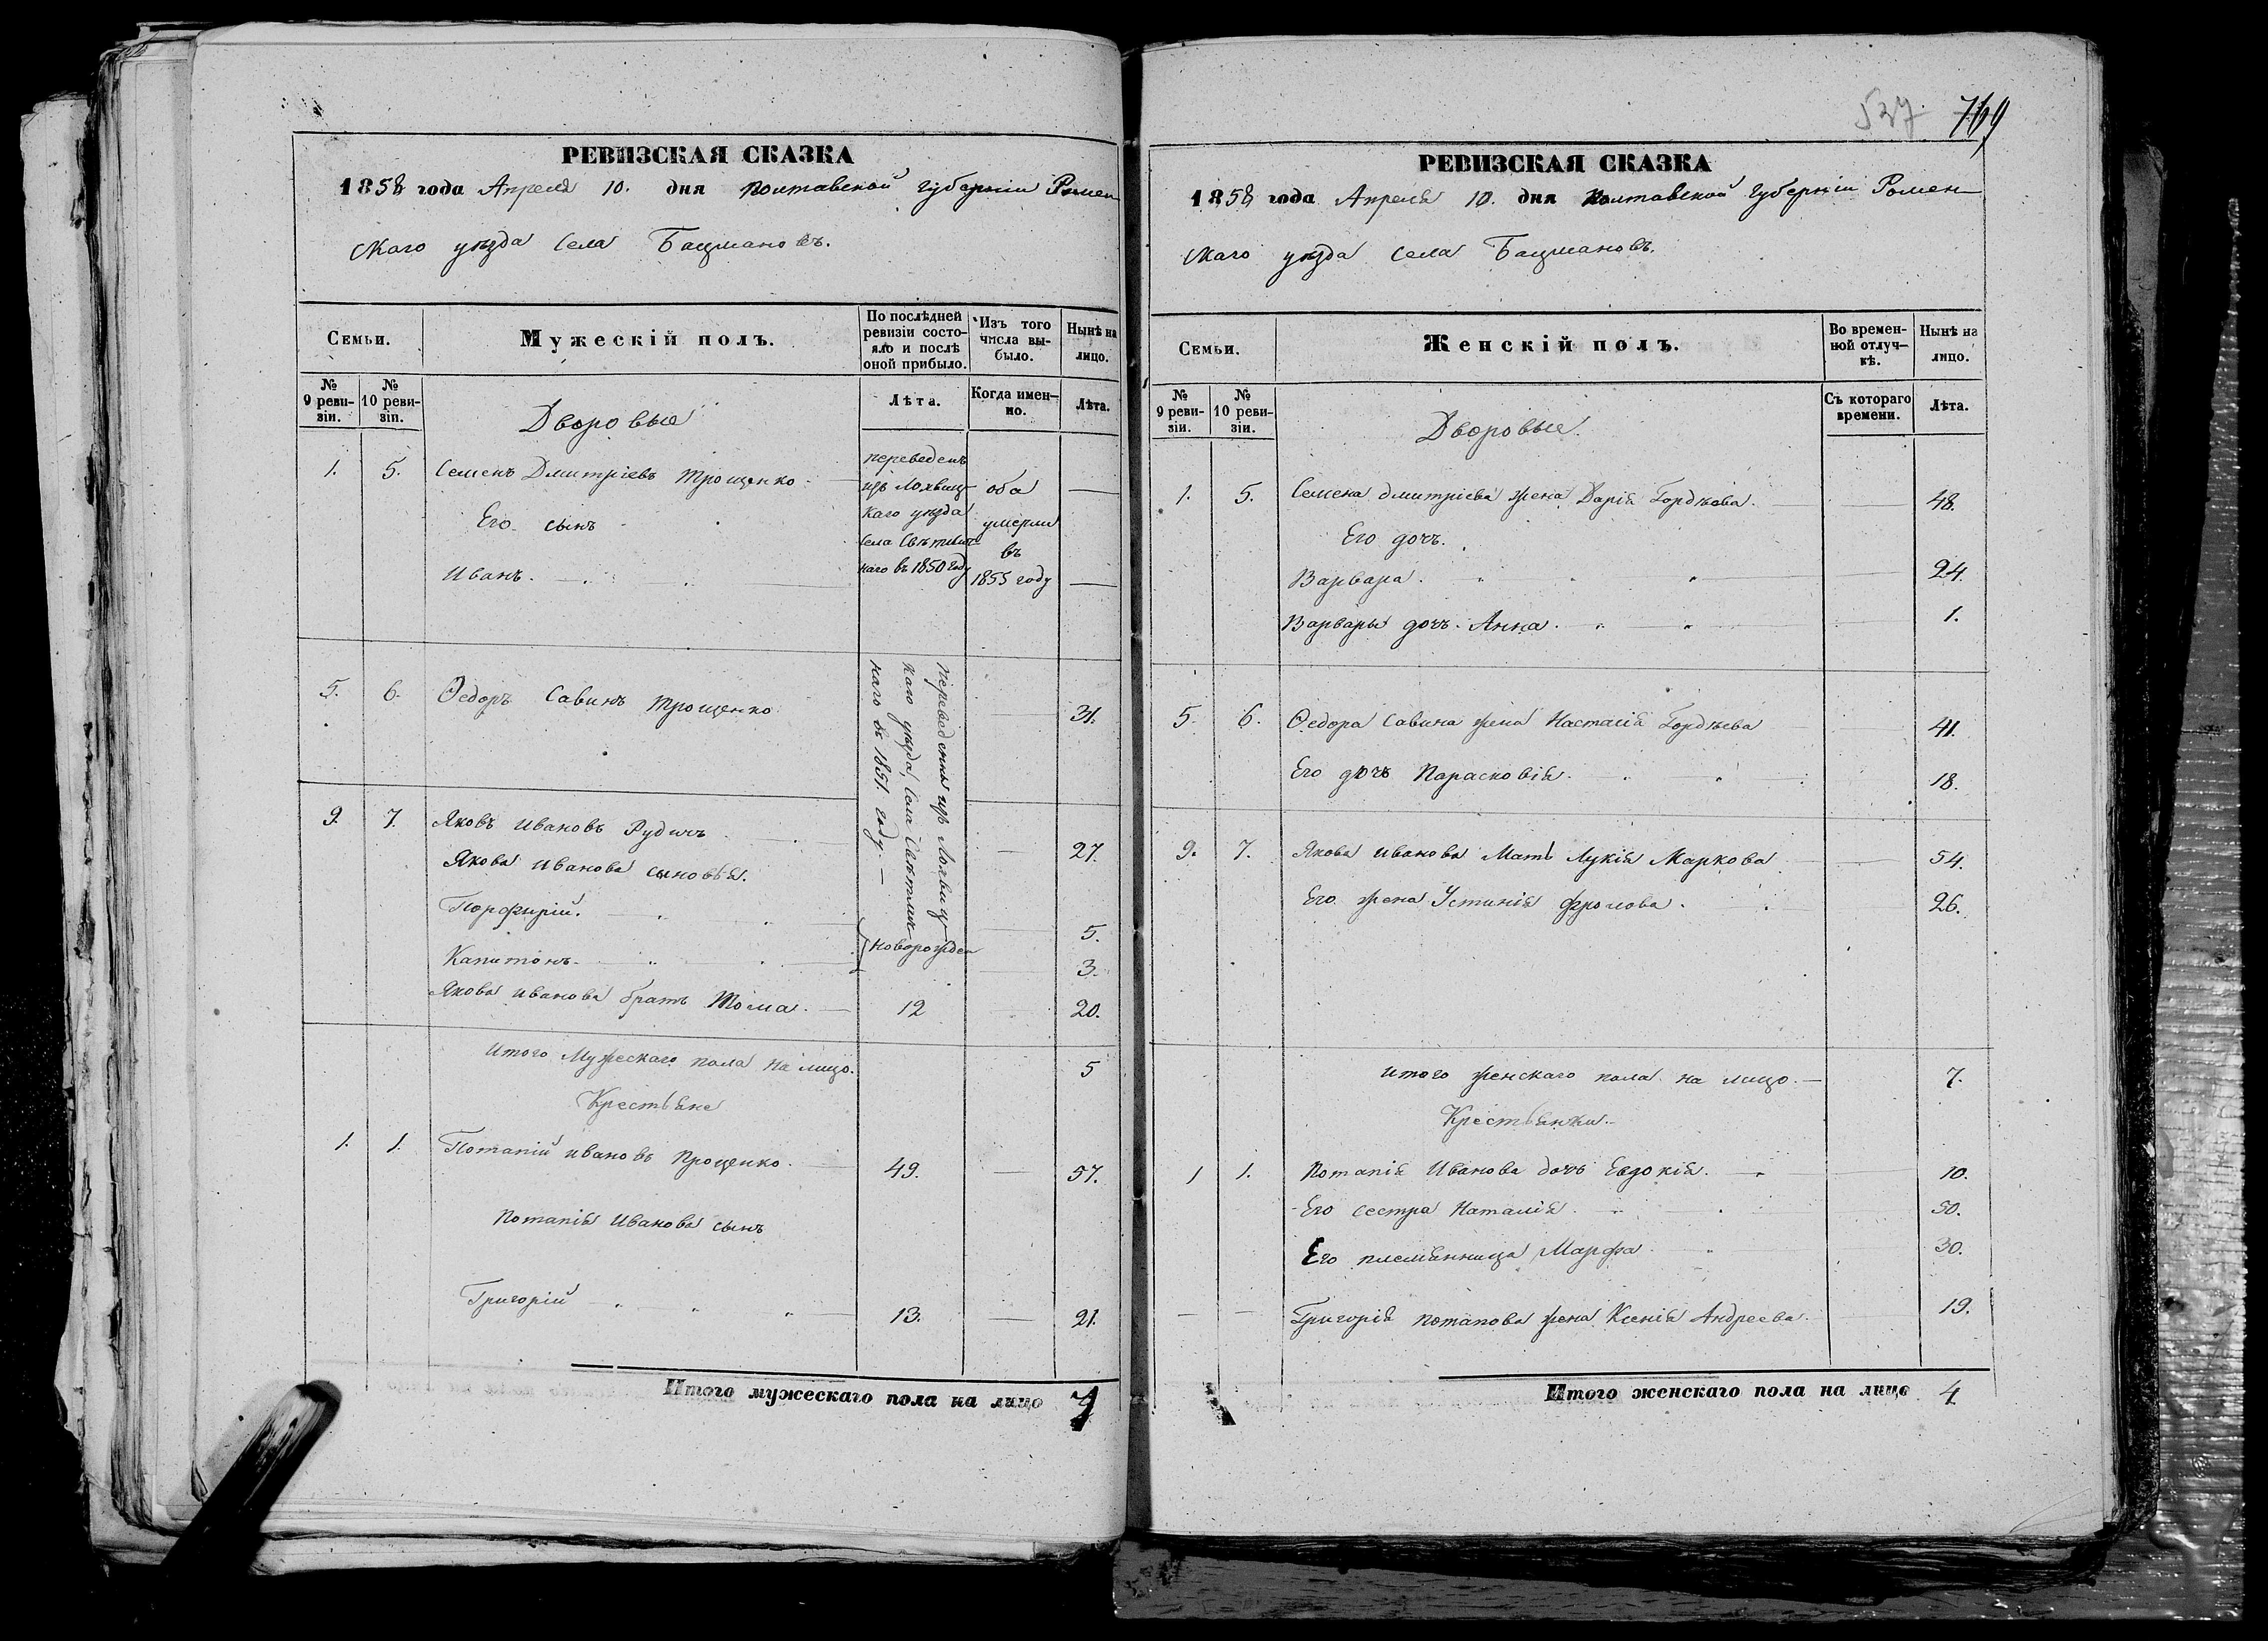 РЕВИЗСКАЯ СКАЗКА
1858 года Апреля 10. дня Полтавской губерніи Ромен
скаго уѣзда села Бацмановъ.
Семьи.
Мужескій полъ.
По послѣдней ревизіи состояло и послѣ оной прибыло.
Изъ того числа выбыло.
Нынѣ на лицо.
№ 9 ревизіи.
№ 10 ревизіи.
Лѣта.
Когда именно.
Лѣта.
Дворовые
1. 5. Семенъ Дмитріевъ Трощенко
переведенъ
изъ Лохвиц
каго уѣзда
села
каго въ 1850 году
оба
умерли
въ
1855 году
Его сынъ
Иванъ.
переведены изъ Лохвиц
каго уѣзда, села
каго въ 1851. году. —
5. 6. Ѳедоръ Савинъ Трощенко 31.
9. 7. Яковъ Ивановъ Рудичъ 27.
Якова Иванова сыновья.
Порфирій. 5.
новорожден
Капитонъ 3.
Якова Иванова братъ Тома. 12 20.
Итого Мужескаго пола на лицо. 5
Крестьяне
1. 1. Потапій Ивановъ Проценко. 49. 57.
Потапія Иванова сынъ
Григорій 13. 21.
Итого мужескаго пола на лицо
527. 769
РЕВИЗСКАЯ СКАЗКА
1858 года Апреля 10. дня Полтавской Губерніи Ромен
скаго уѣзда села Бацмановъ.
Семьи.
Женскій полъ.
Во временной отлучкѣ.
Нынѣ на лицо.
№ 9 ревизіи.
№ 10 ревизіи.
Съ котораго времени.
Лѣта.
Дворовые.
1. 5. Семена Дмитріева жена Дарія Гордѣева. 48.
Его дочь.
Варвара. 24.
Варвары дочь. Анна. 1.
5. 6. Ѳедора Савина жена Настасія Гордѣева 41.
Его дочь Парасковія. 18.
9. 7. Якова Иванова Мать Лукія Маркова 54.
Его жена Устинія Фролова. 26.
Итого женскаго пола на лицо. 7.
Крестьянки.
1 1. Потапія Иванова дочь Евдокія. 10.
Его сестра Наталія. 50.
Его племянница Марфа 30.
Григорія Потапова жена Ксенія Андреева. 19.
Итого женскаго пола на лицо 4